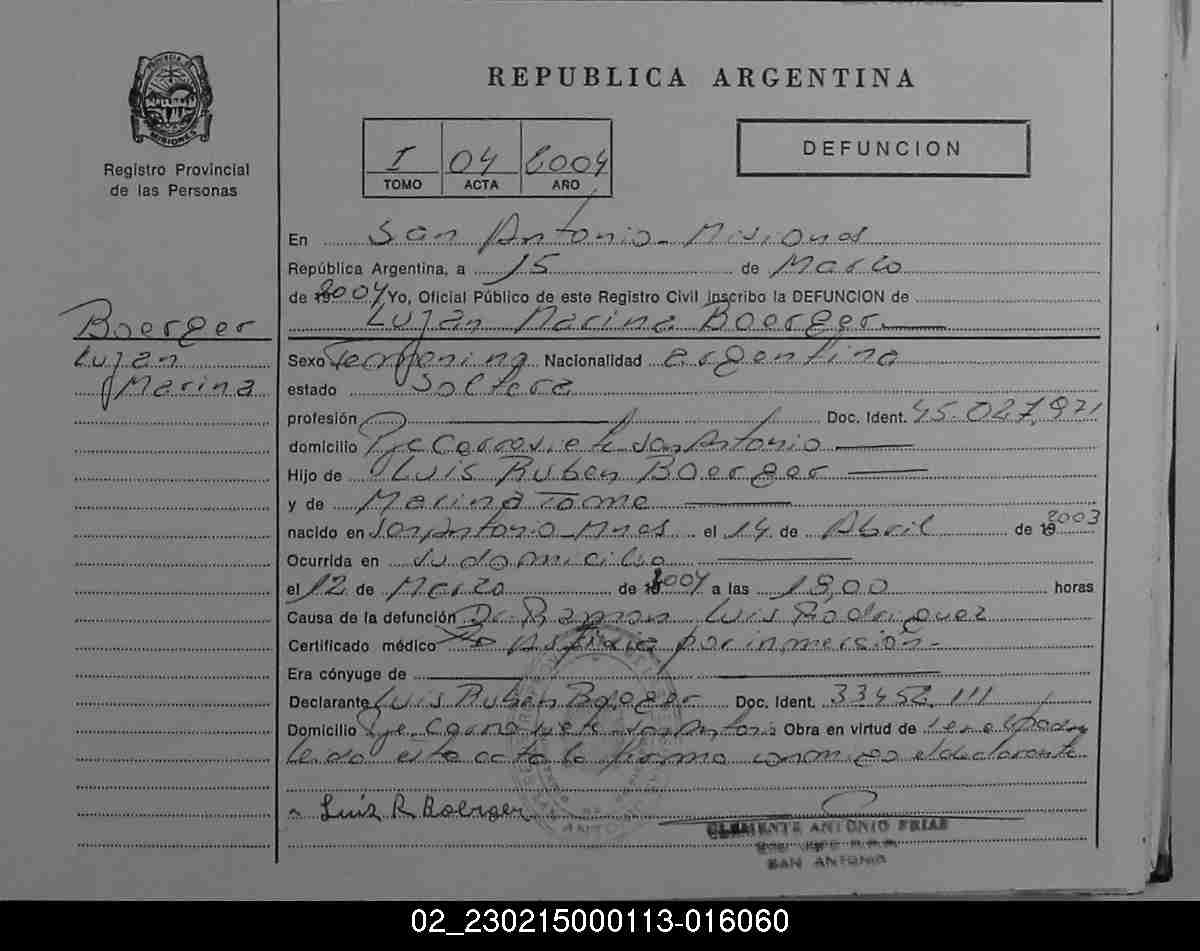 REPUBLICA ARGENTINA
PROVINCIA DE
MISIONES
Registro Provincial
de las Personas
I 04 2004
TOMO ACTA AÑO
DEFUNCION
En San Antonio - Misiones
República Argentina, a 15 de Marzo
de 2004 Yo, Oficial Público de este Registro Civil inscribo la DEFUNCION de
Luján Marina Boerger
Boerger
Luján
Marina
Sexo Femenina Nacionalidad argentina
estado Soltera
profesión Doc. Ident. 45.027.971
domicilio Pje Carros, e te San Antonio
Hijo de Luis Ruben Boerger
y de Marina Tome
nacido en San Antonio Mnes el 14 de Abril de 2003
Ocurrida en su domicilio
el 12 de Marzo de 2004 a las 18,00 horas
Causa de la defunción Dr. Ramon Luis Rodriguez
Certificado médico Asfixia por inmersión -
Era cónyuge de
Declarante Luis Ruben Boerger Doc. Ident. 33.452.111
Domicilio Pje. San Antonio Obra en virtud de ser el padre
leida esta acta la firma conmigo el declarante
Luis R Boerger
CLEMENTE ANTONIO FRIAS
SAN ANTONIO
02_230215000113-016060